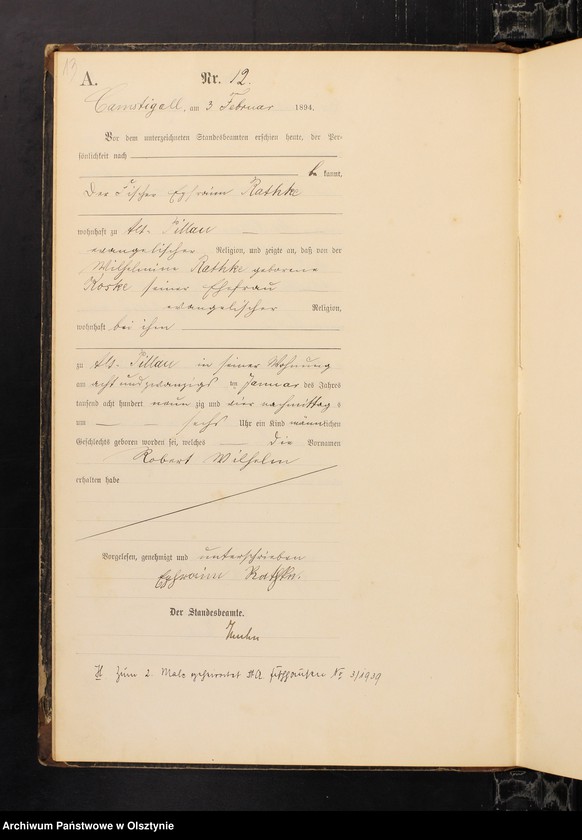 13
A.
Nr. 12.
Camstigall, am 3 Februar 1894.
Vor dem unterzeichneten Standesbeamten erschien heute, der Per-
sönlichkeit nach
be kannt,
der Fischer Ephraim Rathke
wohnhaft zu Alt-Pillau
evangelischer Religion, und zeigte an, daß von der
Wilhelmine Rathke geborene
Koske seiner Ehefrau
evangelischer Religion,
wohnhaft bei ihm
zu Alt-Pillau in seiner Wohnung
am acht und zwanzigs ten Januar des Jahres
tausend acht hundert neun zig und vier nachmittag s
um sechs Uhr ein Kind männlichen
Geschlechts geboren worden sei, welches die Vornamen
Robert Wilhelm
erhalten habe
Vorgelesen, genehmigt und unterschrieben
Ephraim Rathke.
Der Standesbeamte.
H Zum 2. Male geheiratet StA Fischhausen No 3/1939
Archiwum Państwowe w Olsztynie